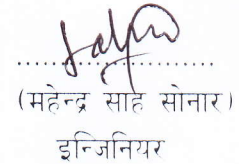 (महेन्द्र साह सोनार)
इन्जिनियर